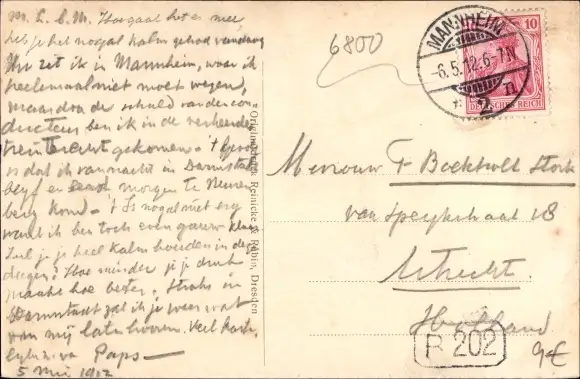 M. L. C. M. Hoe gaat het er mee,
heb je het nogal kalm gehad vandaag
Nu zit ik in Mannheim, waar ik
heelemaal niet moet wezen,
maar door de schuld van den con-
ducteur ben ik in de verkeerde
trein terecht gekomen. 't Gevolg
is dat ik van nacht in Darmstadt
blijf en eerst morgen te Neuren-
berg kom. 't Is nogal niet erg
want ik ben toch even gauw klaar
Zul je je heel kalm houden in die
dagen? Hoe minder jij je druk
maakt hoe beter. Straks in
Darmstadt zal ik je weer wat
van mij laten hooren. Veel
Paps
5 Mei 1912
Originalphot. Reinicke & Rubin, Dresden
6800
MANNHEIM
-6.5.12.6-7N
2
10
DEUTSCHES REICH
Mevrouw F Boekholt Stork
van Speykstraat 18
Utrecht
Holland
P 202
9€